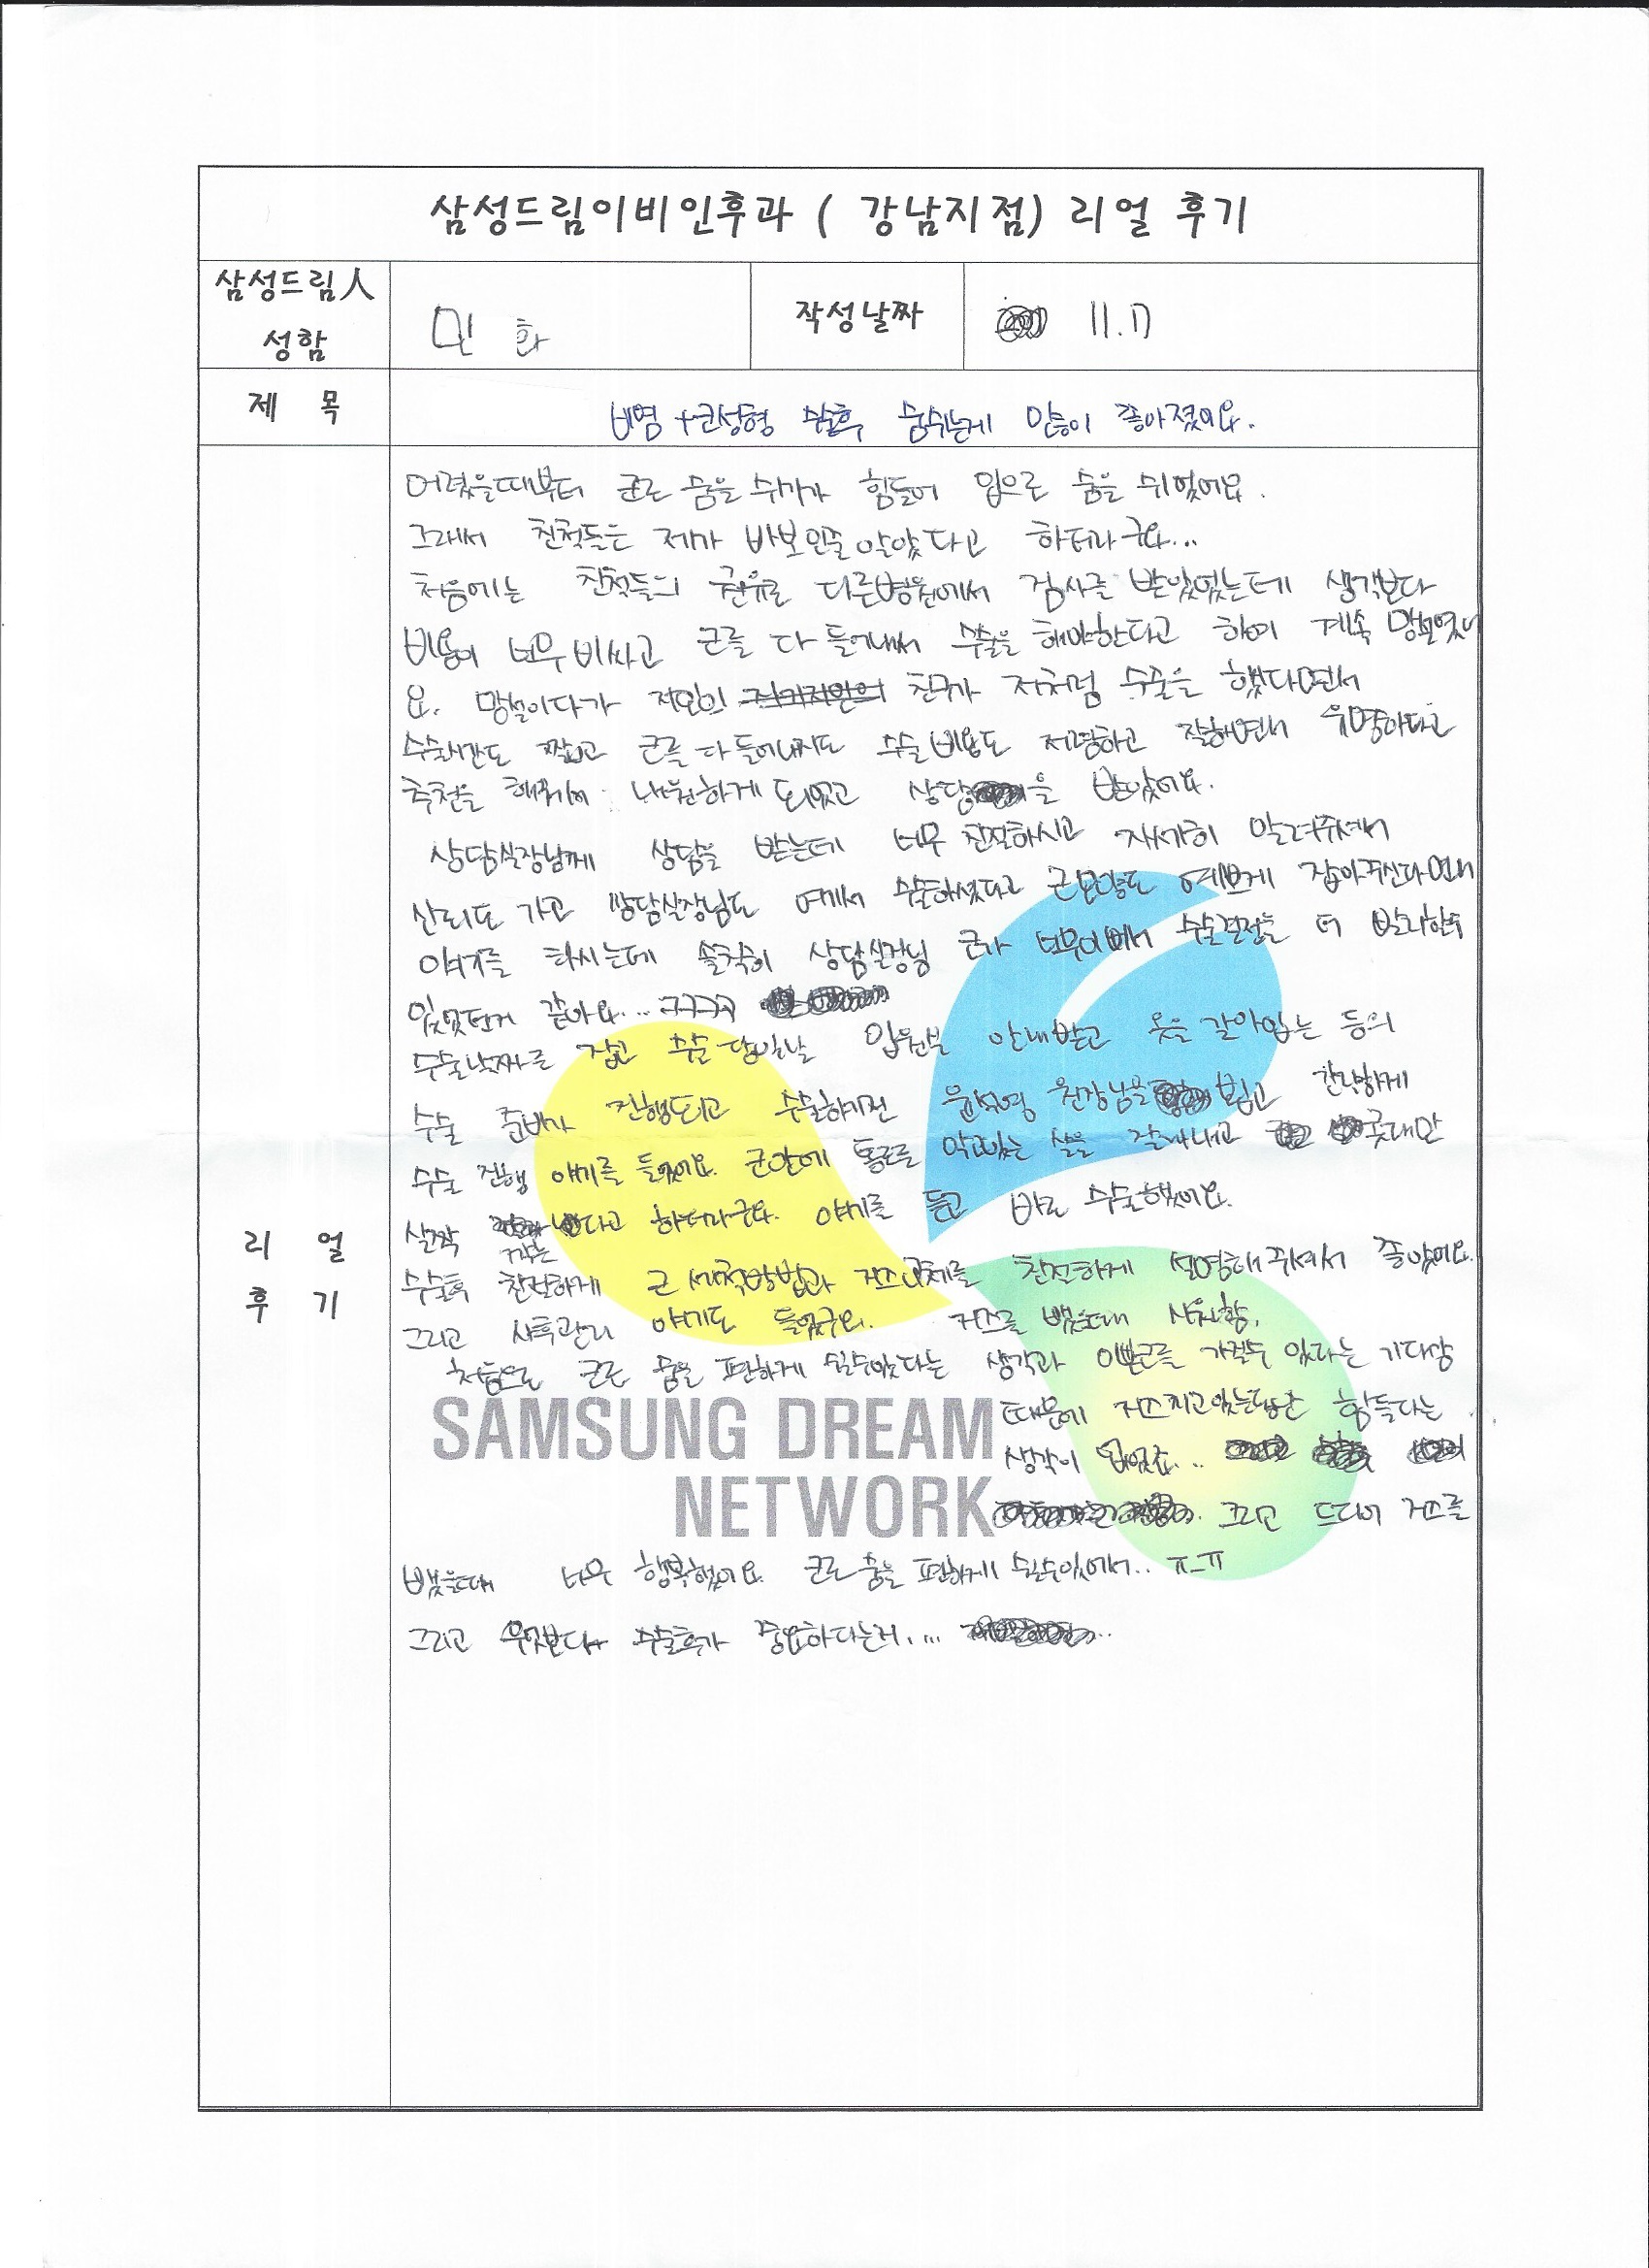 삼성드림이비인후과 ( 강남지점) 리얼 후기
삼성드림人
성함
민 화
작성날짜
11.17
제 목
비염+코성형 수술후 숨쉬는게 많이 좋아졌어요.
리 얼
후 기
어렸을때부터 코로 숨을 쉬기가 힘들어 입으로 숨을 쉬었어요.
그래서 친척들은 제가 바보인줄 알았다고 하더라구요...
처음에는 친척들의 권유로 다른병원에서 검사를 받았었는데 생각보다
비용이 너무 비싸고 코를 다 들어내서 수술을 해야한다고 하여 계속 망설였어
요. 망설이다가 지인의 친구가 저처럼 수술을 했다면서
수술시간도 짧고 코를 다 들어내지도 수술비용도 저렴하고 잘하면서 유명하다고
추천을 해줘서 내원하게 되었고 상담을 받았어요.
상담실장님께 상담을 받는데 너무 친절하시고 자세히 알려주셔서
신뢰도 가고 상담실장님도 여기서 수술하셨다고 코모양도 예쁘게 잡아주신다면서
얘기를 하시는데 솔직히 상담실장님 코가 너무이뻐서 수술결정을 더 빨리할수
있었던거 같아요... ㅋㅋㅋㅋ
수술날짜를 잡고 수술 당일날 입원실 안내받고 옷을 갈아입는 등의
수술 준비가 진행되고 수술하기전 윤석영 원장님을 뵙고 간략하게
수술 진행 얘기를 들었어요. 코안에 통로를 막고있는 살을 잘라내고 콧대만
살짝 다고 하더라구요. 얘기를 듣고 바로 수술했어요.
수술후 친절하게 코 세척방법과 거즈교체를 친절하게 설명해주셔서 좋았어요.
그리고 사후관리 얘기도 들었구요. 거즈를 뺐을때 시원함.
처음으로 코로 숨을 편하게 쉴수있다는 생각과 이쁜코를 가질수 있다는 기다감
때문에 거즈끼고있는동안 힘들다는
생각이 없었죠...
SAMSUNG DREAM
NETWORK
그리고 드디어 거즈를
뺐을때 너무 행복했어요. 코로 숨을 편하게 쉴수있어서.. ㅠ_ㅠ
그리고 무엇보다 수술후가 중요하다는거....